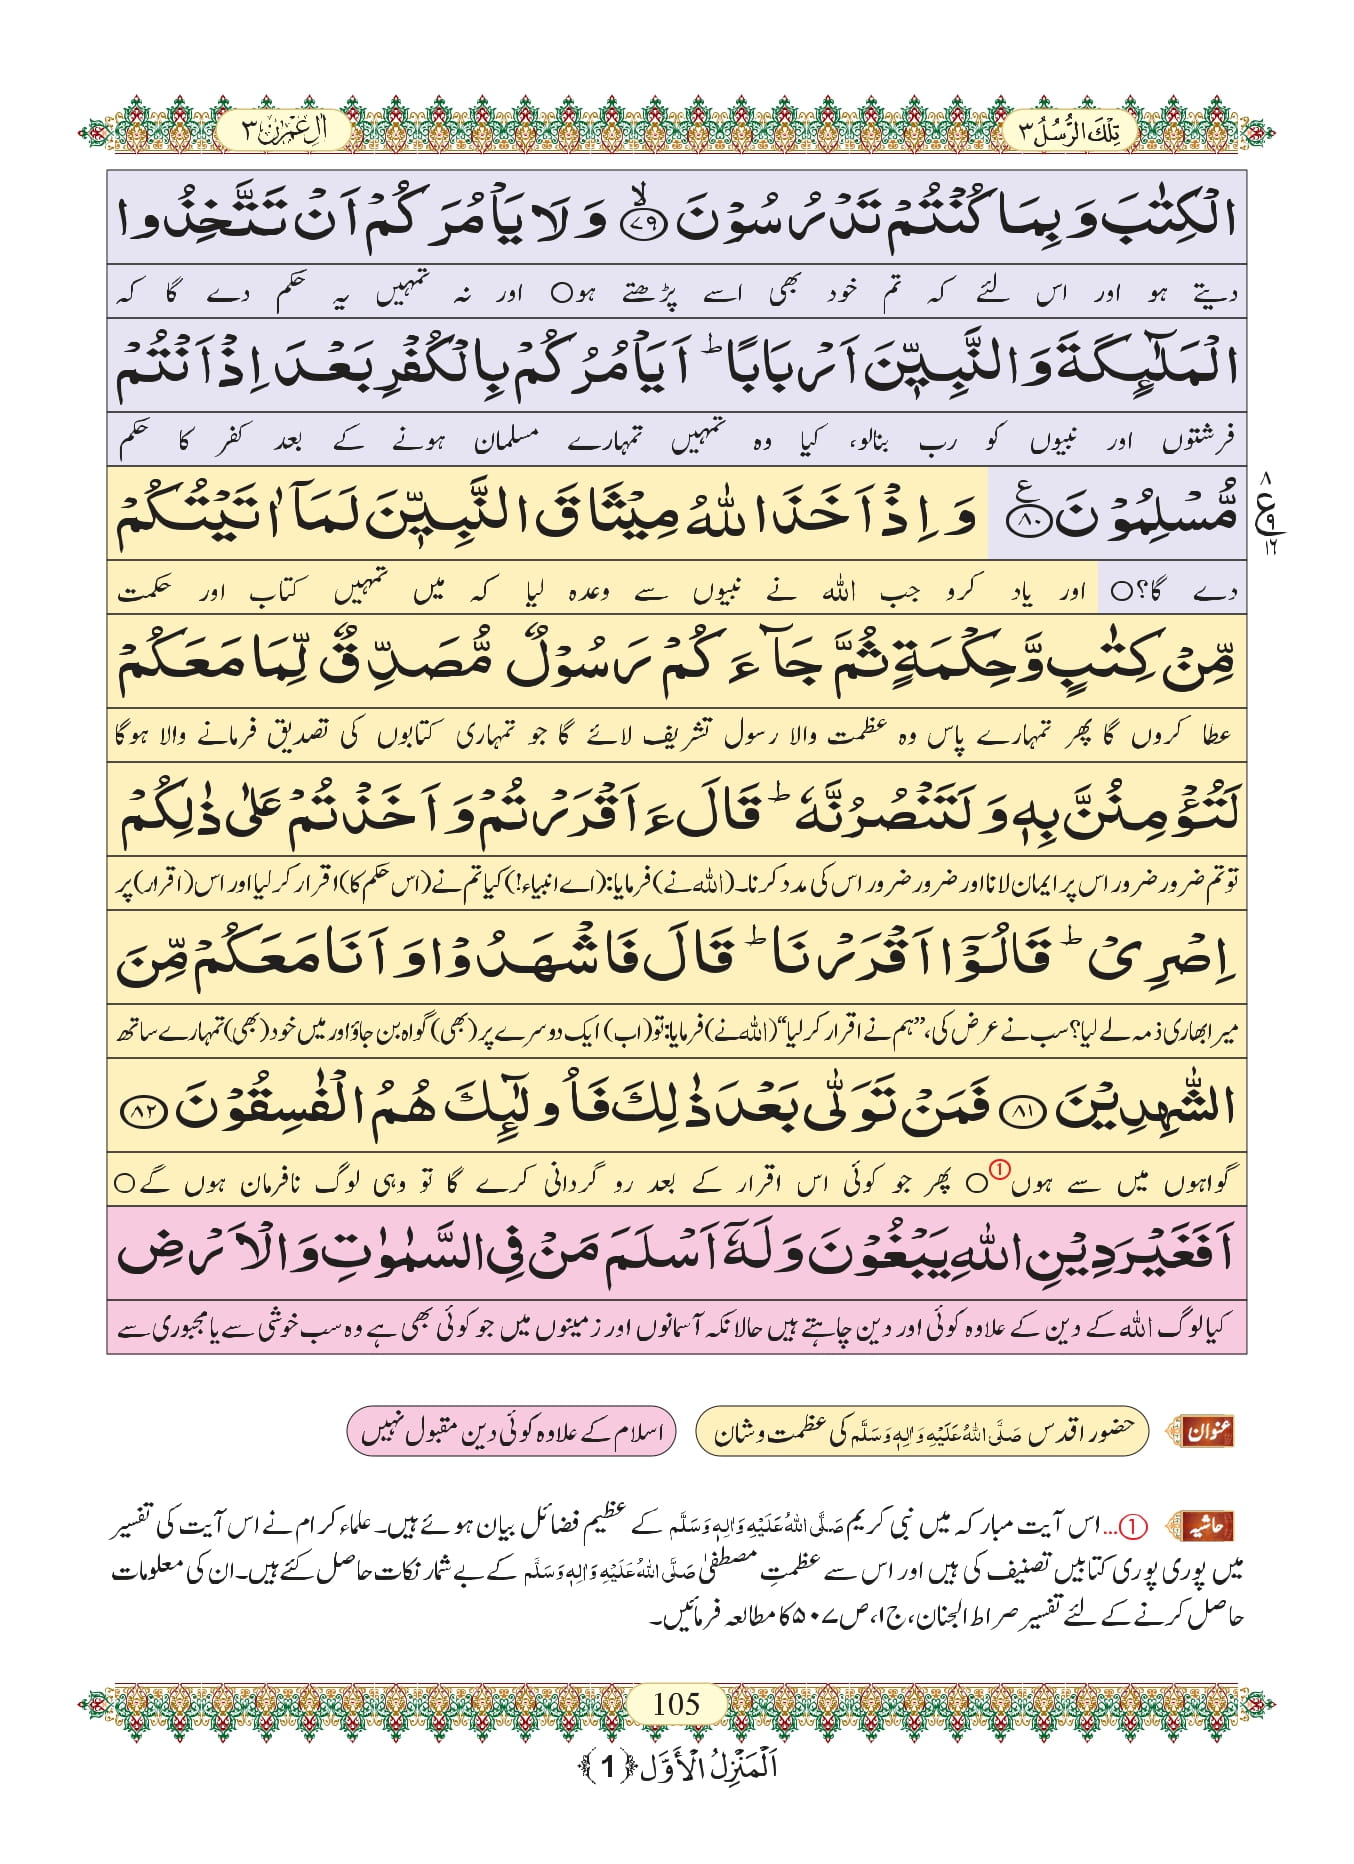 تِلْكَ الرُّسُلُ ٣
اٰلِ عِمْرٰن ٣
الْكِتٰبَ وَ بِمَا كُنْتُمْ تَدْرُسُوْنَۙ﴿۷۹﴾ وَ لَا یَاْمُرَكُمْ اَنْ تَتَّخِذُوا
دیتے ہو اور اس لئے کہ تم خود بھی اسے پڑھتے ہو○ اور نہ تمہیں یہ حکم دے گا کہ
الْمَلٰٓىٕكَةَ وَ النَّبِیّٖنَ اَرْبَابًاؕ اَیَاْمُرُكُمْ بِالْكُفْرِ بَعْدَ اِذْ اَنْتُمْ
فرشتوں اور نبیوں کو رب بنالو، کیا وہ تمہیں تمہارے مسلمان ہونے کے بعد کفر کا حکم
مُّسْلِمُوْنَ۠﴿۸۰﴾ وَ اِذْ اَخَذَ اللّٰهُ مِیْثَاقَ النَّبِیّٖنَ لَمَاۤ اٰتَیْتُكُمْ
۸ ع ۹ ۱۶
دے گا؟○ اور یاد کرو جب اللہ نے نبیوں سے وعدہ لیا کہ میں تمہیں کتاب اور حکمت
مِّنْ كِتٰبٍ وَّ حِكْمَةٍ ثُمَّ جَآءَكُمْ رَسُوْلٌ مُّصَدِّقٌ لِّمَا مَعَكُمْ
عطا کروں گا پھر تمہارے پاس وہ عظمت والا رسول تشریف لائے گا جو تمہاری کتابوں کی تصدیق فرمانے والا ہوگا
لَتُؤْمِنُنَّ بِهٖ وَ لَتَنْصُرُنَّهٗؕ قَالَ ءَاَقْرَرْتُمْ وَ اَخَذْتُمْ عَلٰى ذٰلِكُمْ
تو تم ضرور ضرور اس پر ایمان لانا اور ضرور ضرور اس کی مدد کرنا۔ (اللہ نے) فرمایا: (اے انبیاء!) کیا تم نے (اس حکم کا) اقرار کرلیا اور اس (اقرار) پر
اِصْرِیْؕ قَالُوْۤا اَقْرَرْنَاؕ قَالَ فَاشْهَدُوْا وَ اَنَا مَعَكُمْ مِّنَ
میرا بھاری ذمہ لے لیا؟ سب نے عرض کی، ”ہم نے اقرار کرلیا“ (اللہ نے) فرمایا: تو (اب) ایک دوسرے پر (بھی) گواہ بن جاؤ اور میں خود (بھی) تمہارے ساتھ
الشّٰهِدِیْنَ﴿۸۱﴾ فَمَنْ تَوَلّٰى بَعْدَ ذٰلِكَ فَاُولٰٓىٕكَ هُمُ الْفٰسِقُوْنَ﴿۸۲﴾
گواہوں میں سے ہوں○① پھر جو کوئی اس اقرار کے بعد روگردانی کرے گا تو وہی لوگ نافرمان ہوں گے○
اَفَغَیْرَ دِیْنِ اللّٰهِ یَبْغُوْنَ وَ لَهٗۤ اَسْلَمَ مَنْ فِی السَّمٰوٰتِ وَ الْاَرْضِ
کیا لوگ اللہ کے دین کے علاوہ کوئی اور دین چاہتے ہیں حالانکہ آسمانوں اور زمینوں میں جو کوئی بھی ہے وہ سب خوشی سے یا مجبوری سے
عنوان حضور اقدس صَلَّی اللہُ عَلَیْہِ وَاٰلِہٖ وَسَلَّم کی عظمت و شان اسلام کے علاوہ کوئی دین مقبول نہیں
حاشیہ ①... اس آیت مبارکہ میں نبی کریم صَلَّی اللہُ عَلَیْہِ وَاٰلِہٖ وَسَلَّم کے عظیم فضائل بیان ہوئے ہیں۔ علماء کرام نے اس آیت کی تفسیر
میں پوری پوری کتابیں تصنیف کی ہیں اور اس سے عظمتِ مصطفیٰ صَلَّی اللہُ عَلَیْہِ وَاٰلِہٖ وَسَلَّم کے بے شمار نکات حاصل کئے ہیں۔ ان کی معلومات
حاصل کرنے کے لئے تفسیر صراط الجنان، ج۱، ص۵۰۷ کا مطالعہ فرمائیں۔
105
اَلْمَنْزِلُ الْأَوَّل ﴿1﴾